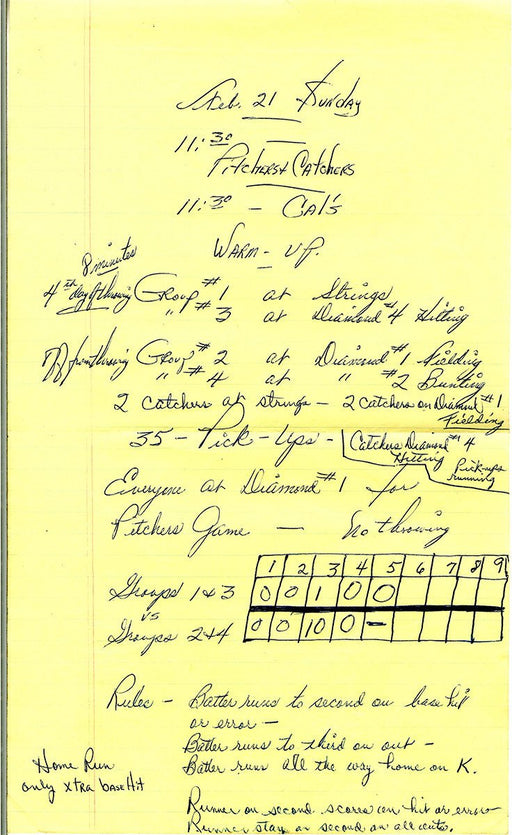 Feb. 21 Sunday
11:30
Pitchers & Catchers
11:30 - Cal's
Warm-up.
8 minutes
4th day of throwing Group #1 at Strings
" #3 at Diamond #4 Hitting
Off from throwing Group #2 at Diamond #1 Fielding
" #4 at " #2 Bunting
2 Catchers at strings - 2 Catchers on Diamond #1
Fielding
35 - Pick-Ups -
Catchers Diamond #4
Hitting
Pick-ups
running
Everyone at Diamond #1 for
Pitchers Game - No throwing
1 2 3 4 5 6 7 8 9
Groups 1 & 3 0 0 1 0 0
vs
Groups 2 & 4 0 0 10 0 -
Rules - Batter runs to second on base hit
or error -
Batter runs to third on out -
Batter runs all the way home on K.
Home Run
only xtra base Hit
Runner on second scores on hit or error
Runner stay on second on all outs.